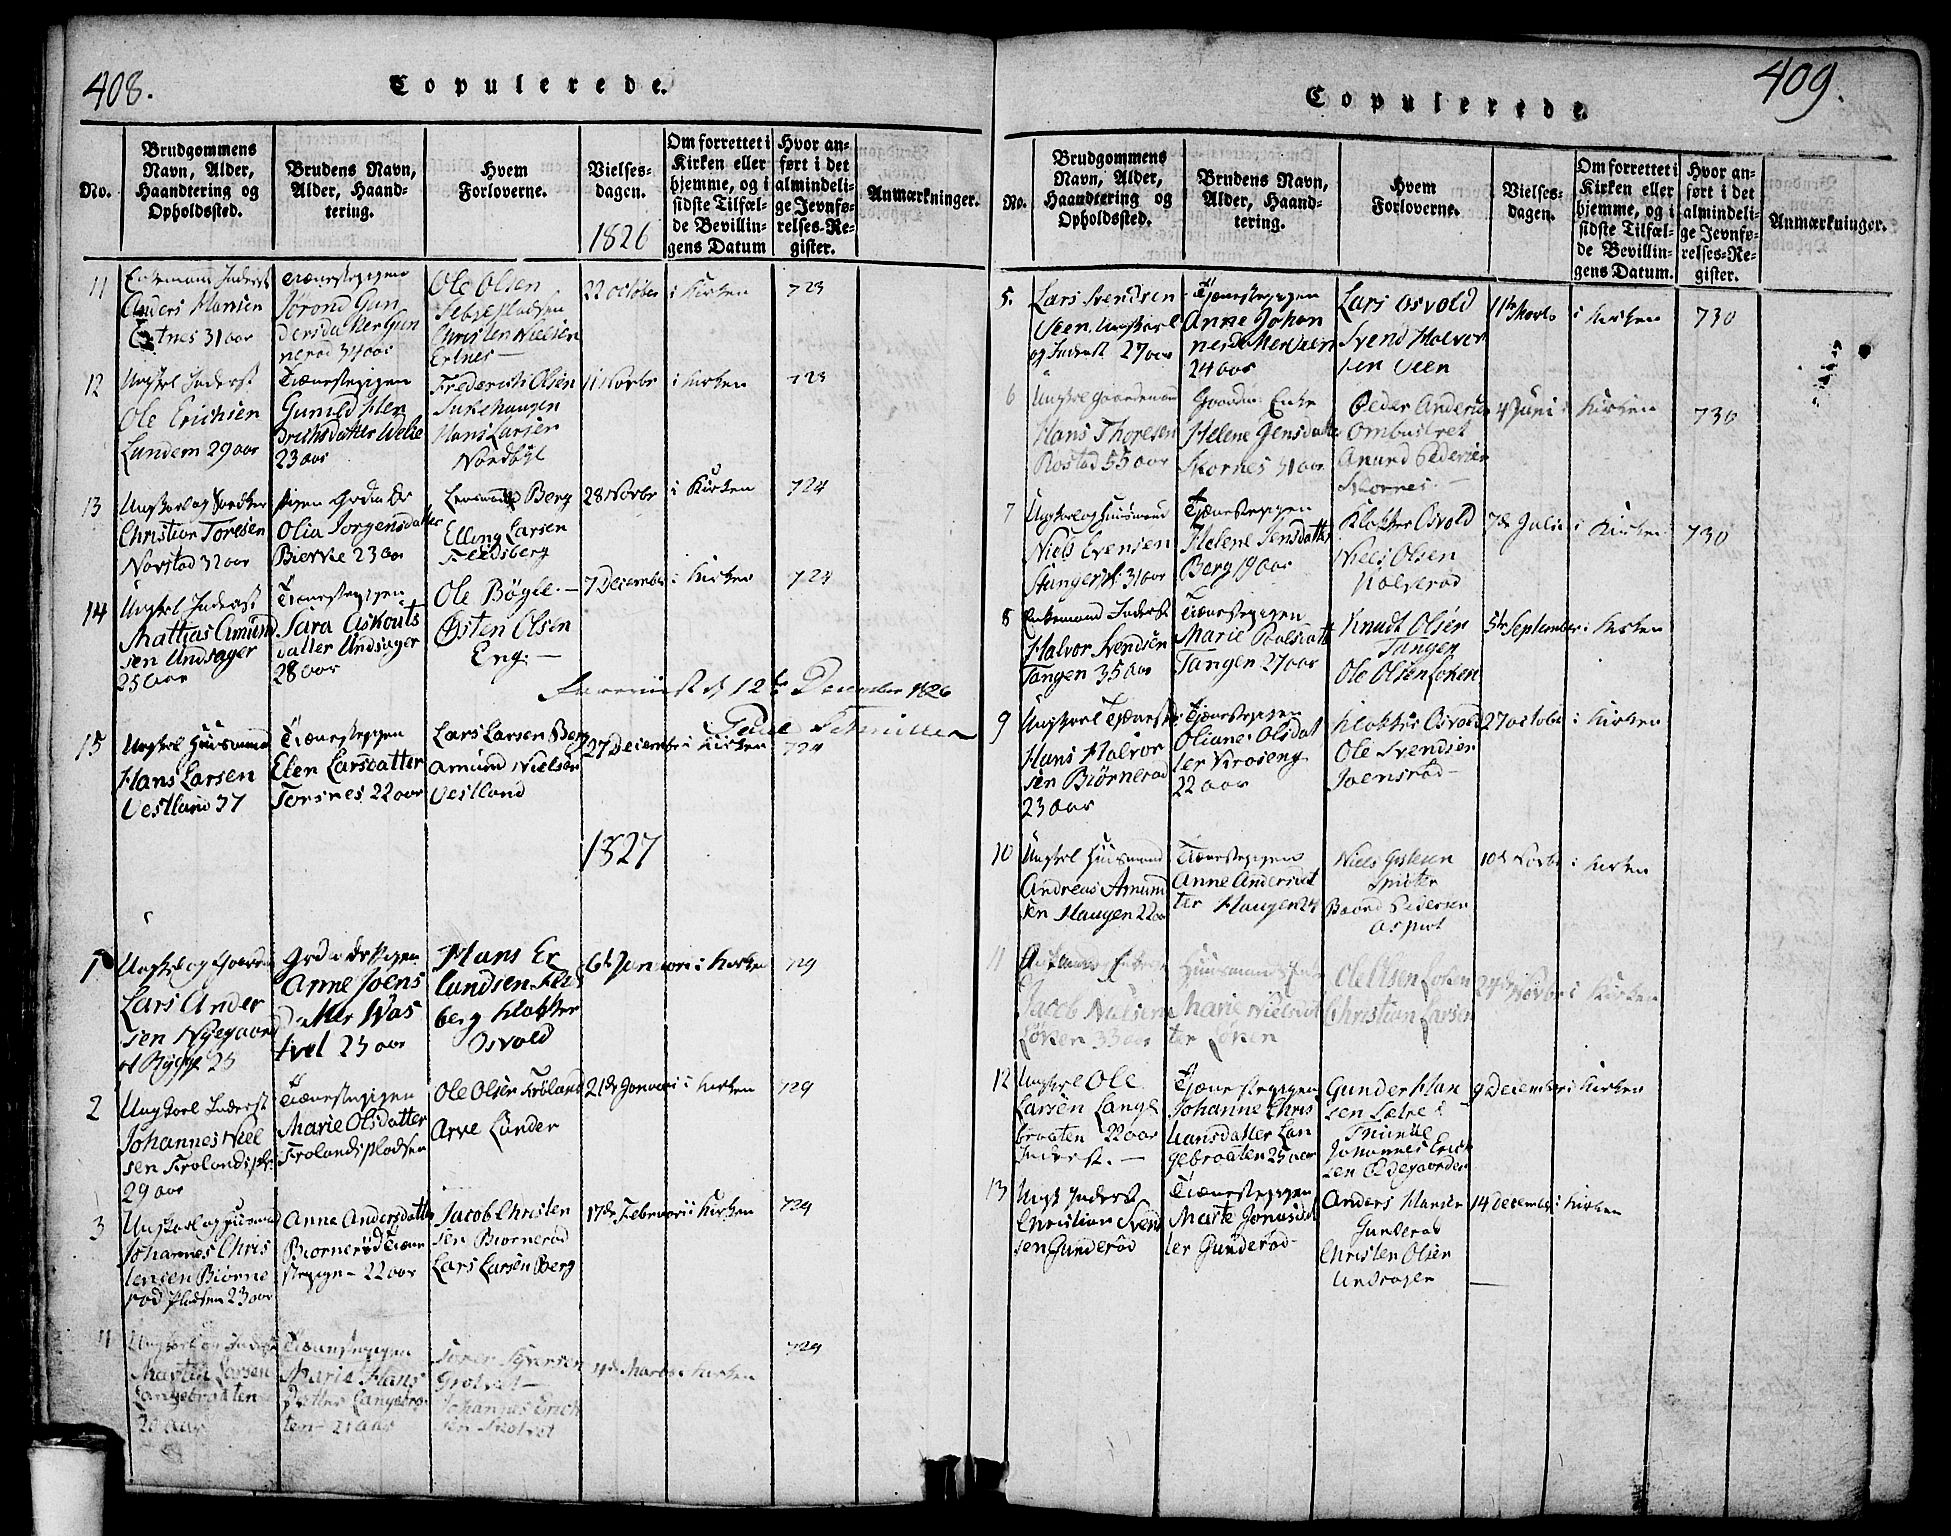 408.
Copulerede.
No.
Brudgommens
Navn, Alder,
Haandtering og
Opholdssted.
Brudens Navn,
Alder, Haand-
tering.
Hvem
Forloverne.
Vielses-
dagen.
1826
Om forrettet i
Kirken eller
hjemme, og i
sidste Tilfæl-
de Bevillin-
gens Datum
Hvor an-
ført i det
almindeli-
ge Jevnfø-
relses-Re-
gister.
Anmærkninger.
11
Enkemand Inderst
Anders Hansen
Ertnes 31 aar
Tienestepigen
Jørond Gun
dersdatter Gun
nerød 34 aar
Ole Olsen
Christen Nielsen
Ertnes
22 october
i Kirken
723
12
Ungkrl Inderst
Ole Erichsen
Lundem 29 aar
Tienestepigen
Gunild Hen
drichsdatter
23 aar
Frederich Olsen
Hans Larsen
Nordbÿe
11 Novbr
i Kirken
723
13
Christian Toresen
Norstad 32 aar
pigen
Olia Jorgensdatter
Bierke 23 aar
Berg
Elling Larsen
28 Novbr
i Kirken
724
14
Ungkrl Inderst
Mathias Amund
sen Undsager
25 aar
Tienestepigen
Sara Askouts
datter Undsager
28 aar
Ole Bögle
Østen Olsen
Eng.
7 December
i Kirken
724
12te December 1826
15
Ungkrl Huusmand
Hans Larsen
Vestland 37
Tienestepigen
Elen Larsdatter
Torsnes 22 aar
Lars Larsen Berg
Amund Nielsen
Vestland
27 December
i Kirken
724
1827
1
Ungkrl og
Lars Ander
sen Nÿegaard
Anne Joens
datter Was
tvet 23 aar
Hans Er
landsen
berg Klokker
Osvold
6te Januari
i Kirken
729
2
Ungkarl Inderst
Johannes Niel
sen
29 aar
Tienestepigen
Marie Olsdatter
Frolandspladsen
Ole Olsen Frøland
Arve Lünder
21de Januari
i Kirken
729
3
Ungkarl og Huusmand
Johannes Chris
tensen Biørne
rød Pladsen 23 aar
Anne Andersdatter
Biornerød Tiene
stepige 22 aar
Jacob Christen
sen Biornerød
Lars Larsen Berg
17de Februari
i Kirken
729
4
Ungkarl og Inderst
Martin Larsen
Langebraaten
20 aar
Tienestepigen
Marie Hans
Datter Langebra
ten 21 aar
Johannes Erich
sen
4de Marts
i Kirken
729
409.
Copulerede.
No.
Brudgommens
Navn, Alder,
Haandtering og
Opholdssted.
Brudens Navn,
Alder, Haand-
tering.
Hvem
Forloverne.
Vielses-
dagen.
Om forrettet i
Kirken eller
hjemme, og i
sidste Tilfæl-
de Bevillin-
gens Datum.
Hvor an-
ført i det
almindeli-
ge Jevnfø-
relses-Re-
gister.
Anmærkninger.
5.
Lars Svendsen
Veen Ungkarl
og Inderst 27 aar
Tjenestepigen
Anne Johan
nesdatter Veen
24 aar
Lars Osvold
Svend Halvor
sen Veen
11te Marts
i Kirken
730
6
Ungkrl Gaardmand
Hans Thoresen
Rostad 55 aar
Enke
Helene Jensdatter
Skornes 31 aar
Peder Andersen
Ombustvet
Amund Pedersen
Skornes
4 Juni
i Kirken
730
7
Ungkarl og Huusmand
Niels Evensen
31 aar
Tjenestepigen
Helene Jensdatter
Berg 19 aar
Klokker Osvold
Niels Olsen
Holserød
7de Julii
i Kirken
730
8
Enkemand Inderst
Halvor Svendsen
Tangen 35 aar
Tienestepigen
Marie
Tangen 27 aar
Knudt Olsen
Tangen
Ole Olsen Løken
5te September
i Kirken
9
Ungkarl
Hans Halvor
sen Biørnerød
23 aar
Tjenestepigen
Oliane Olsdat
ter
22 aar
Klokker Osvold
Ole Svendsen
Joensrød
27 october
i Kirken
10
Ungkrl Huusmand
Andreas Amund
sen Haugen 22 aar
Tienestepigen
Anne Andersdat
ter Haugen 24
Niels
Baard Pedersen
10de Novbr
i Kirken
11
Jacob Nielsen
Løken 33 aar
Marie Nielsdat
ter Løken
Ole Olsen Løken
Christian Larsen
24de Novbr
i Kirken
12
Ungkrl Ole
Larsen Lange
braaten 22 aar
Inderst.
Tjenestepigen
Johanne Chris
tiansdatter Lan
gebraaten 25 aar
Gunder Han
sen
Johannes Erich
sen Ødegaarden
9 December
i Kirken
13
Ungk Inderst
Christian Svend
sen Gunderød
Tienestepigen
Marte Jonasdat
ter Gunderød
Anders Hansen
Gunderød
Christen Olsen
Undsager
14 December
i Kirken